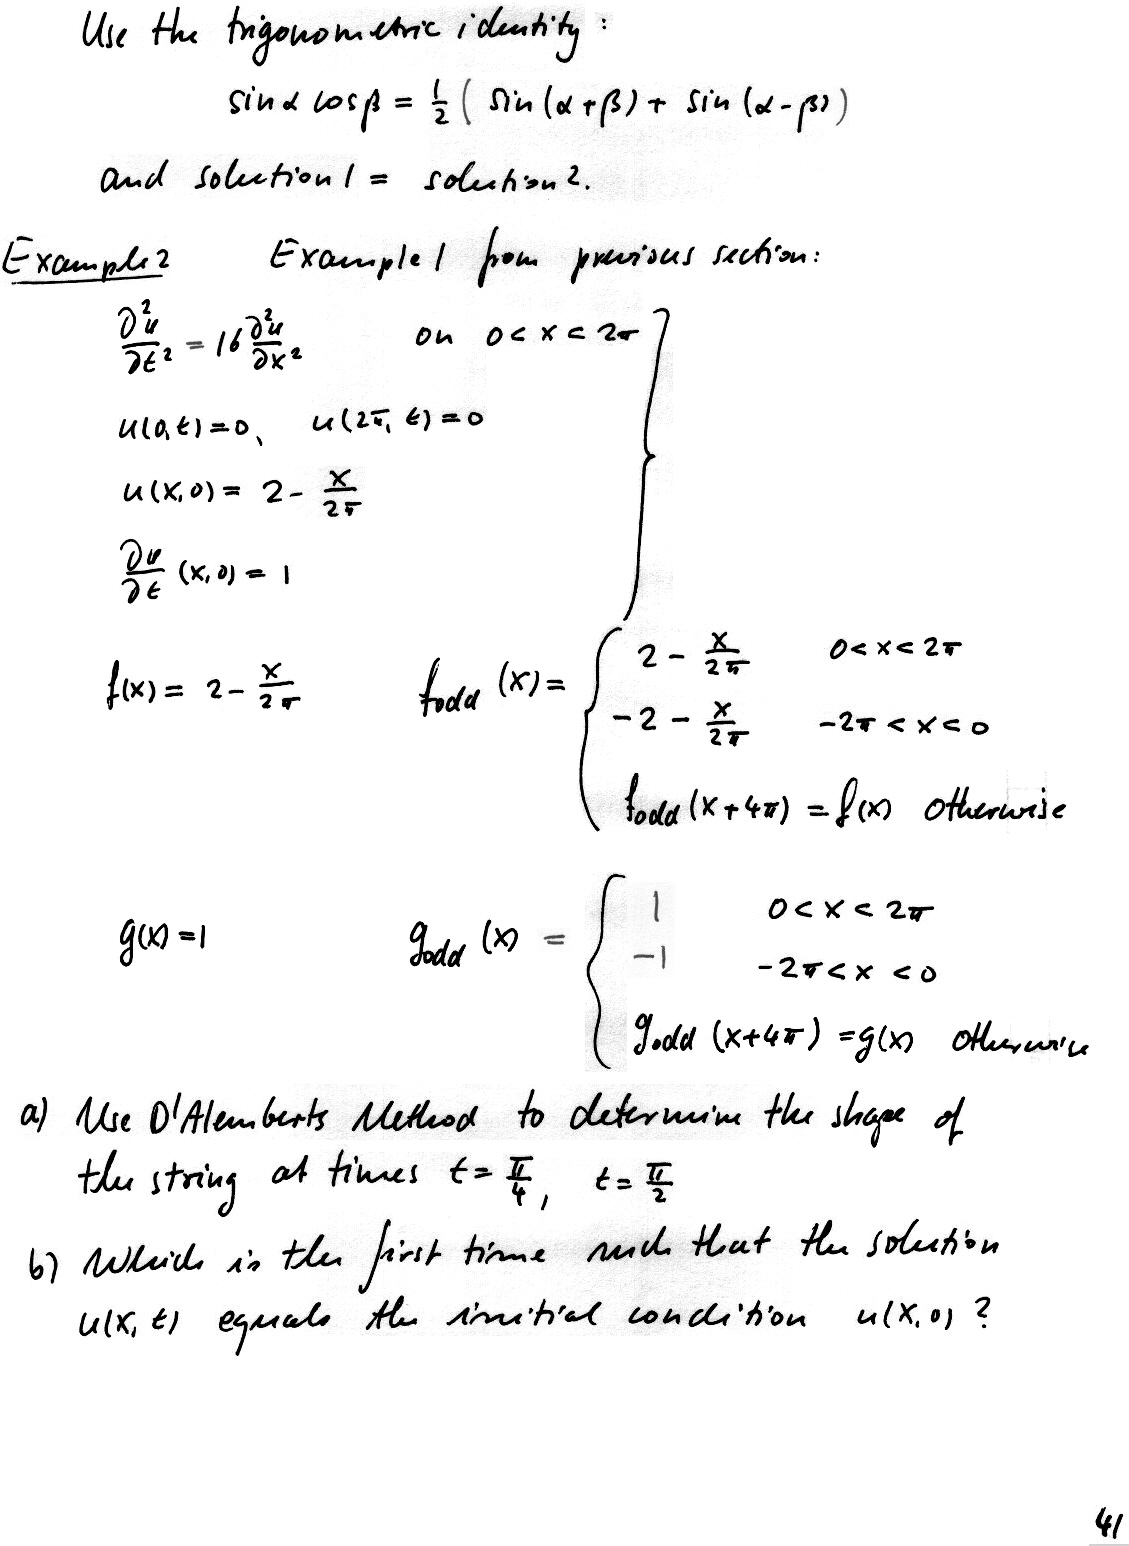 Use the trigonometric identity :
sin α cos β = 1/2 ( sin (α + β) + sin (α - β) )
and solution 1 = solution 2.
Example 2 Example 1 from previous section:
∂²u/∂t² = 16 ∂²u/∂x² on 0 < x < 2π
u(0,t) = 0, u(2π, t) = 0
u(x,0) = 2 - x/2π
∂u/∂t (x,0) = 1
f(x) = 2 - x/2π f_odd (x) = { 2 - x/2π 0 < x < 2π
-2 - x/2π -2π < x < 0
f_odd (x + 4π) = f(x) otherwise
g(x) = 1 g_odd (x) = { 1 0 < x < 2π
-1 -2π < x < 0
g_odd (x+4π) = g(x) otherwise
a) Use D'Alemberts Method to determine the shape of
the string at times t = π/4, t = π/2
b) Which is the first time such that the solution
u(x, t) equals the initial condition u(x, 0) ?
41